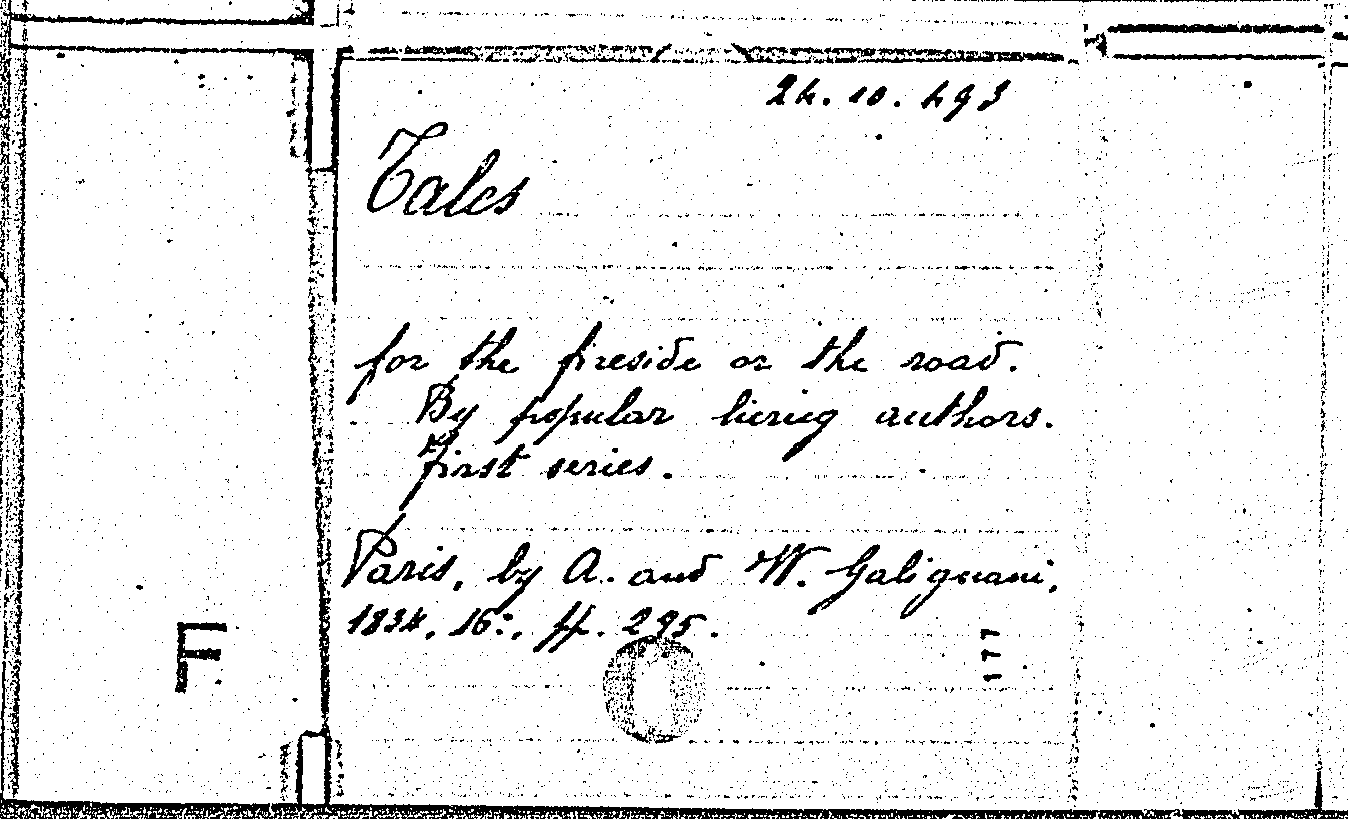 24. 10. 493
Tales
for the fireside or the road.
By popular living authors.
First series.
Paris, by A. and W. Galignani,
1834. 16:, ff. 295.
F
177